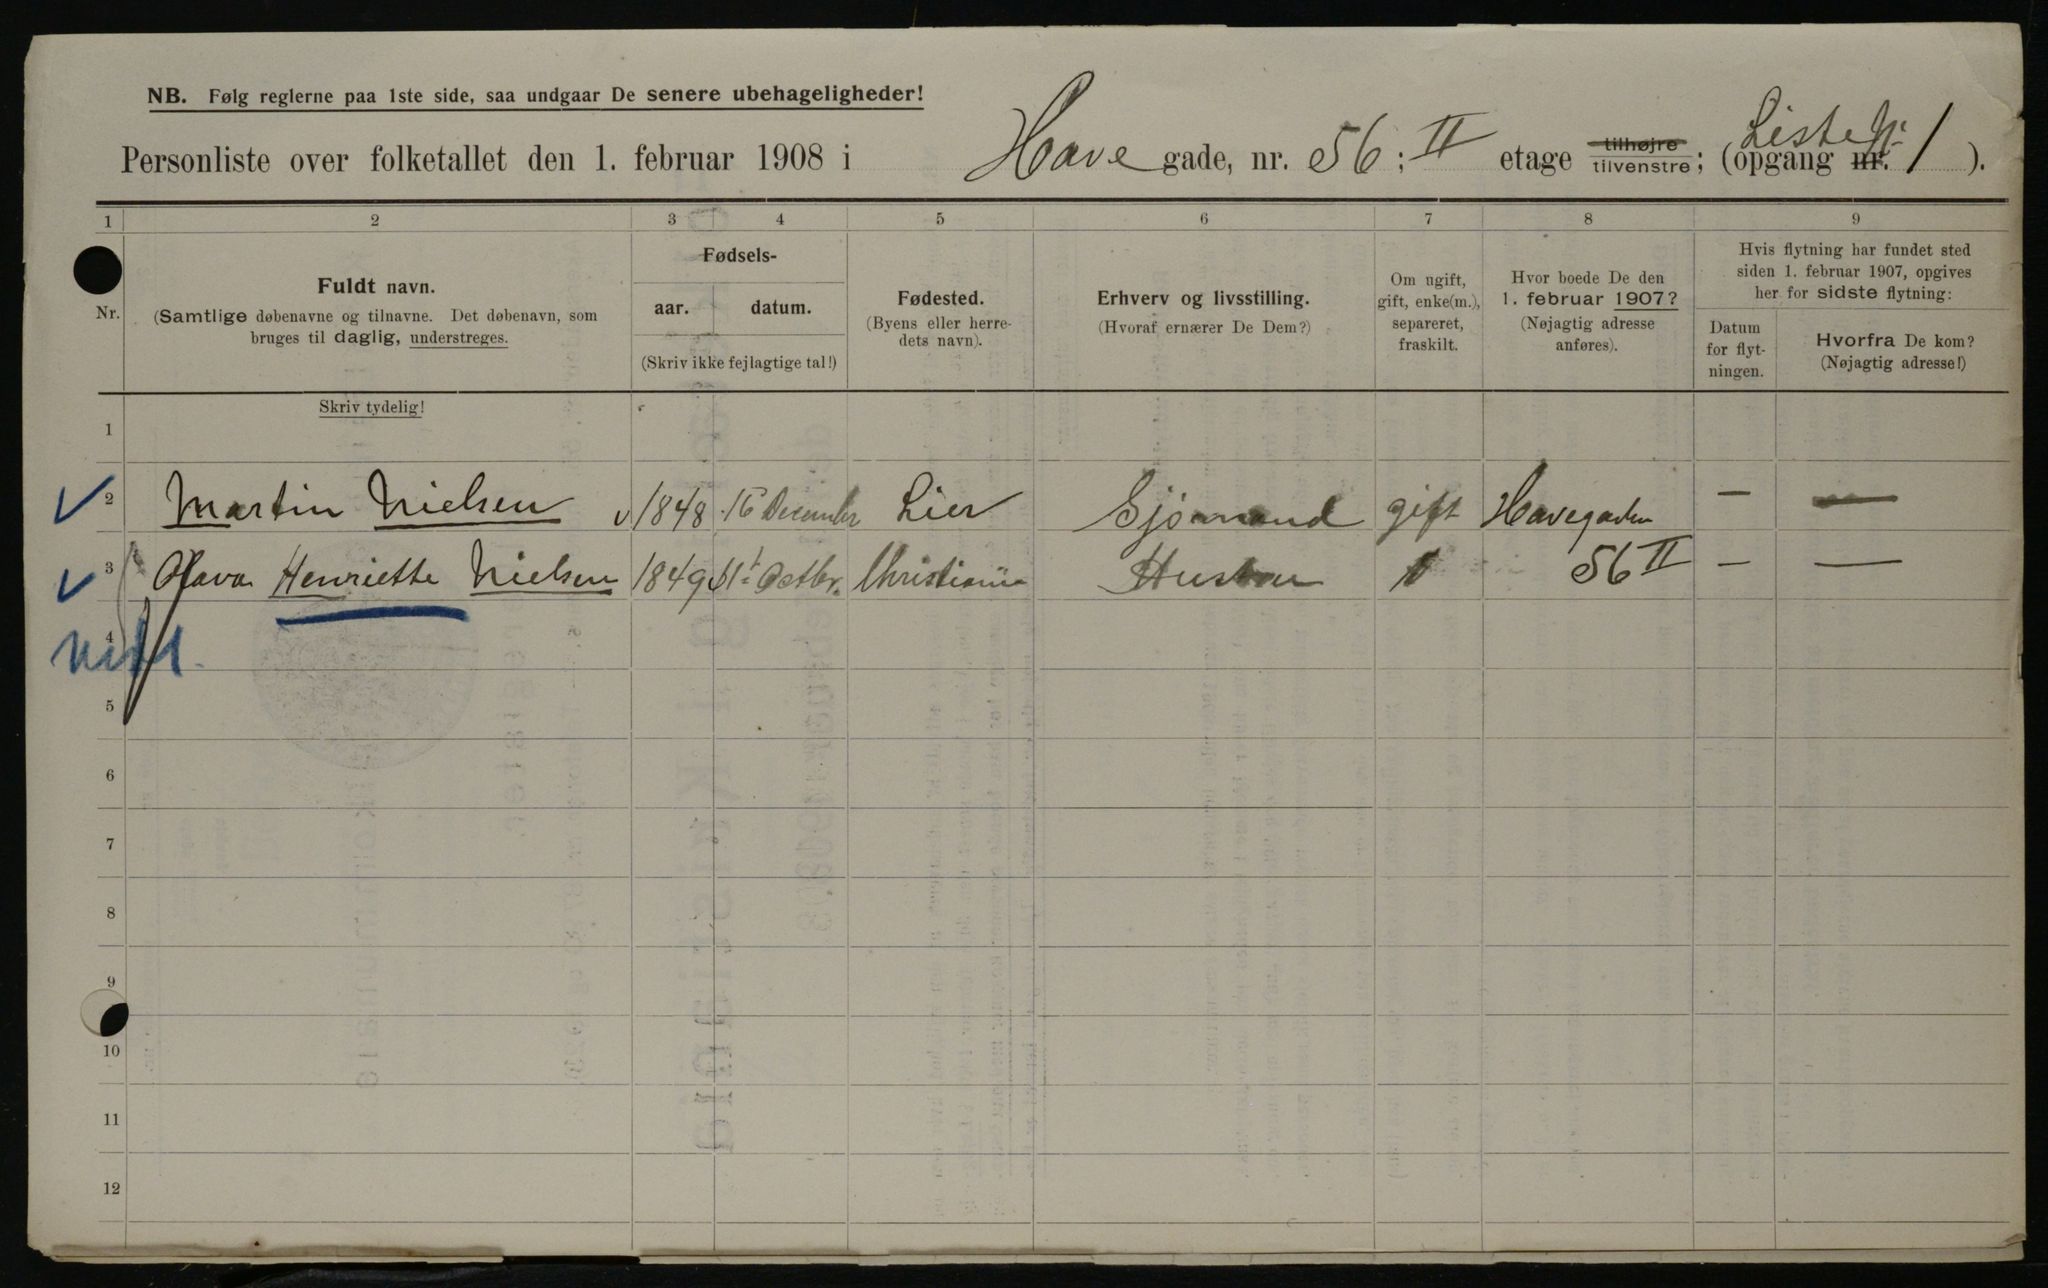 NB. Følg reglerne paa 1ste side, saa undgaar De senere ubehageligheder!
Personliste over folketallet den 1. februar 1908 i Have gade, nr. 56; II etage tilhøjre tilvenstre; (opgang nr. Liste Nr 1).
1 2 3 4 5 6 7 8 9
Nr.
Fuldt navn.
(Samtlige døbenavne og tilnavne. Det døbenavn, som
bruges til daglig, understreges.
Skriv tydelig!
Fødsels-
aar. datum.
(Skriv ikke fejlagtige tal!)
Fødested.
(Byens eller herre-
dets navn).
Erhverv og livsstilling.
(Hvoraf ernærer De Dem?)
Om ugift,
gift, enke(m.),
separeret,
fraskilt.
Hvor boede De den
1. februar 1907?
(Nøjagtig adresse
anføres).
Hvis flytning har fundet sted
siden 1. februar 1907, opgives
her for sidste flytning:
Datum
for flyt-
ningen.
Hvorfra De kom?
(Nøjagtig adresse!)
1
2 Martin Nielsen 1848 16 December Lier Sjömand gift Havegaden — —
3 Olava Henriette Nielsen 1849 Octbr. Christiania Hustru 56 II — —
4
5
6
7
8
9
10
11
12